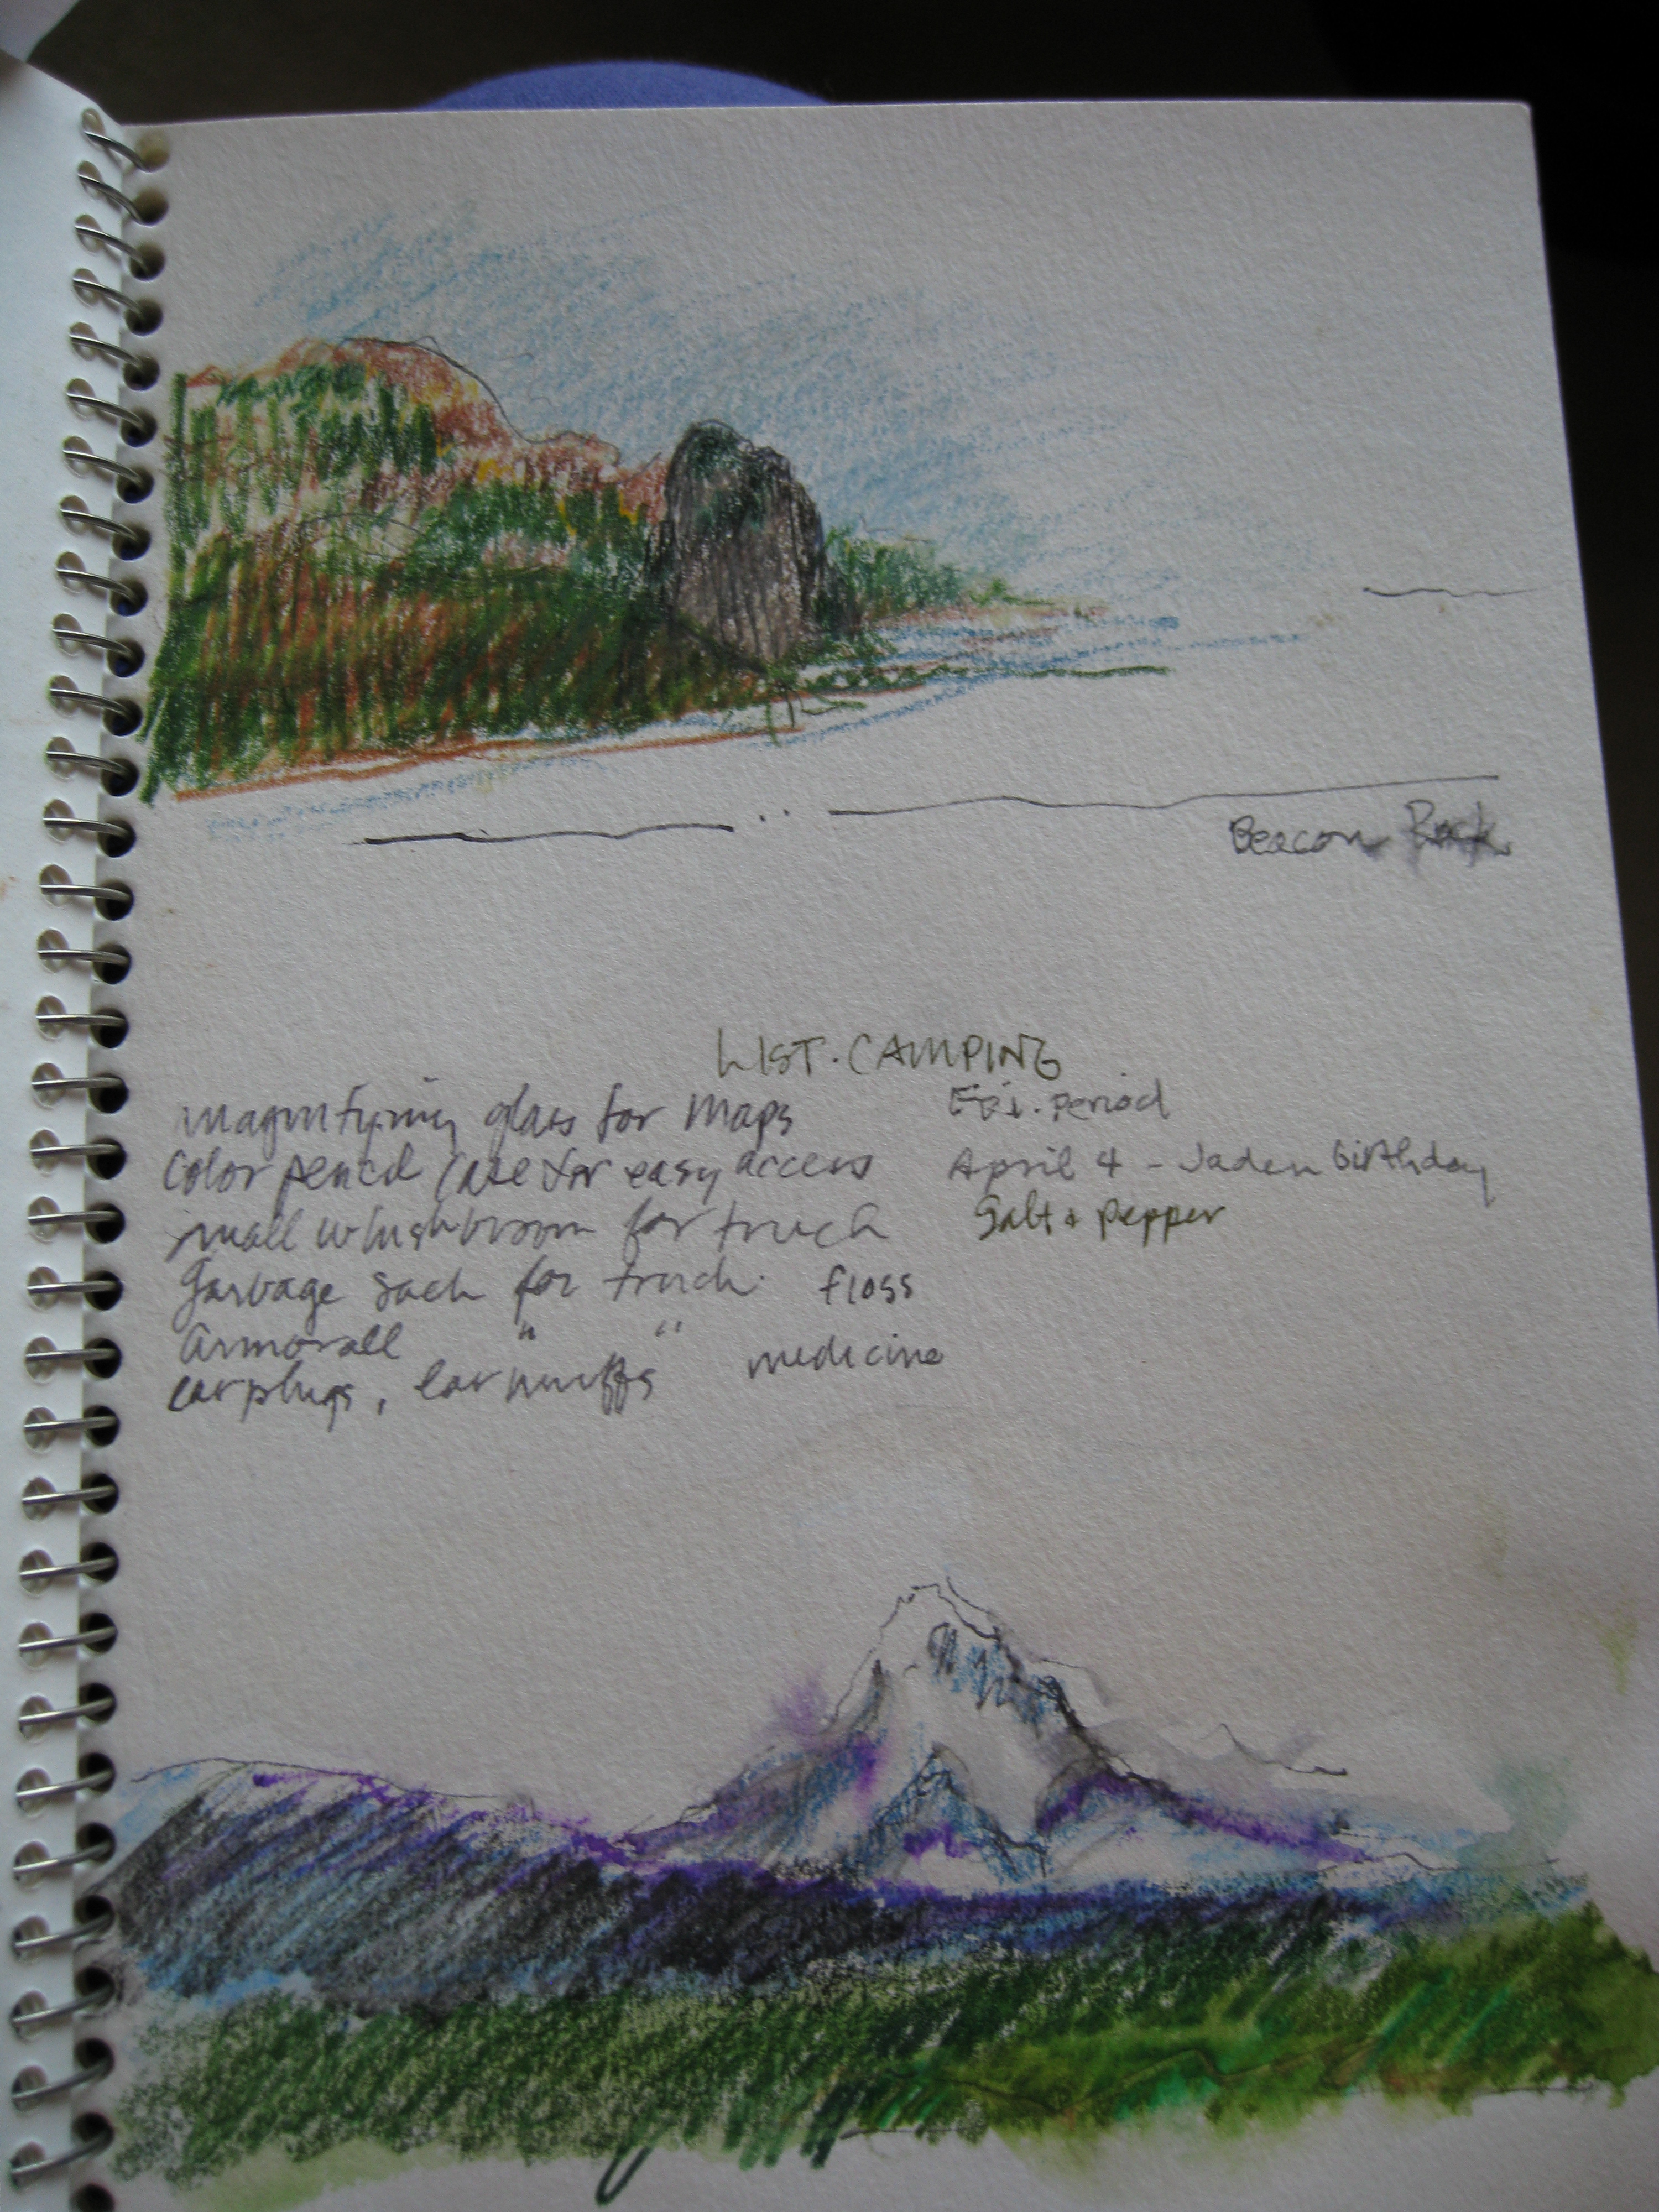 Beacon Rock
LIST. CAMPING
magnifying glass for maps
Color pencil case for easy access
small whiskbroom for truck
Garbage sack for truck. floss
Armorall " "
earplugs, earmuffs medicine
period
April 4 - Jaden birthday
Salt & pepper